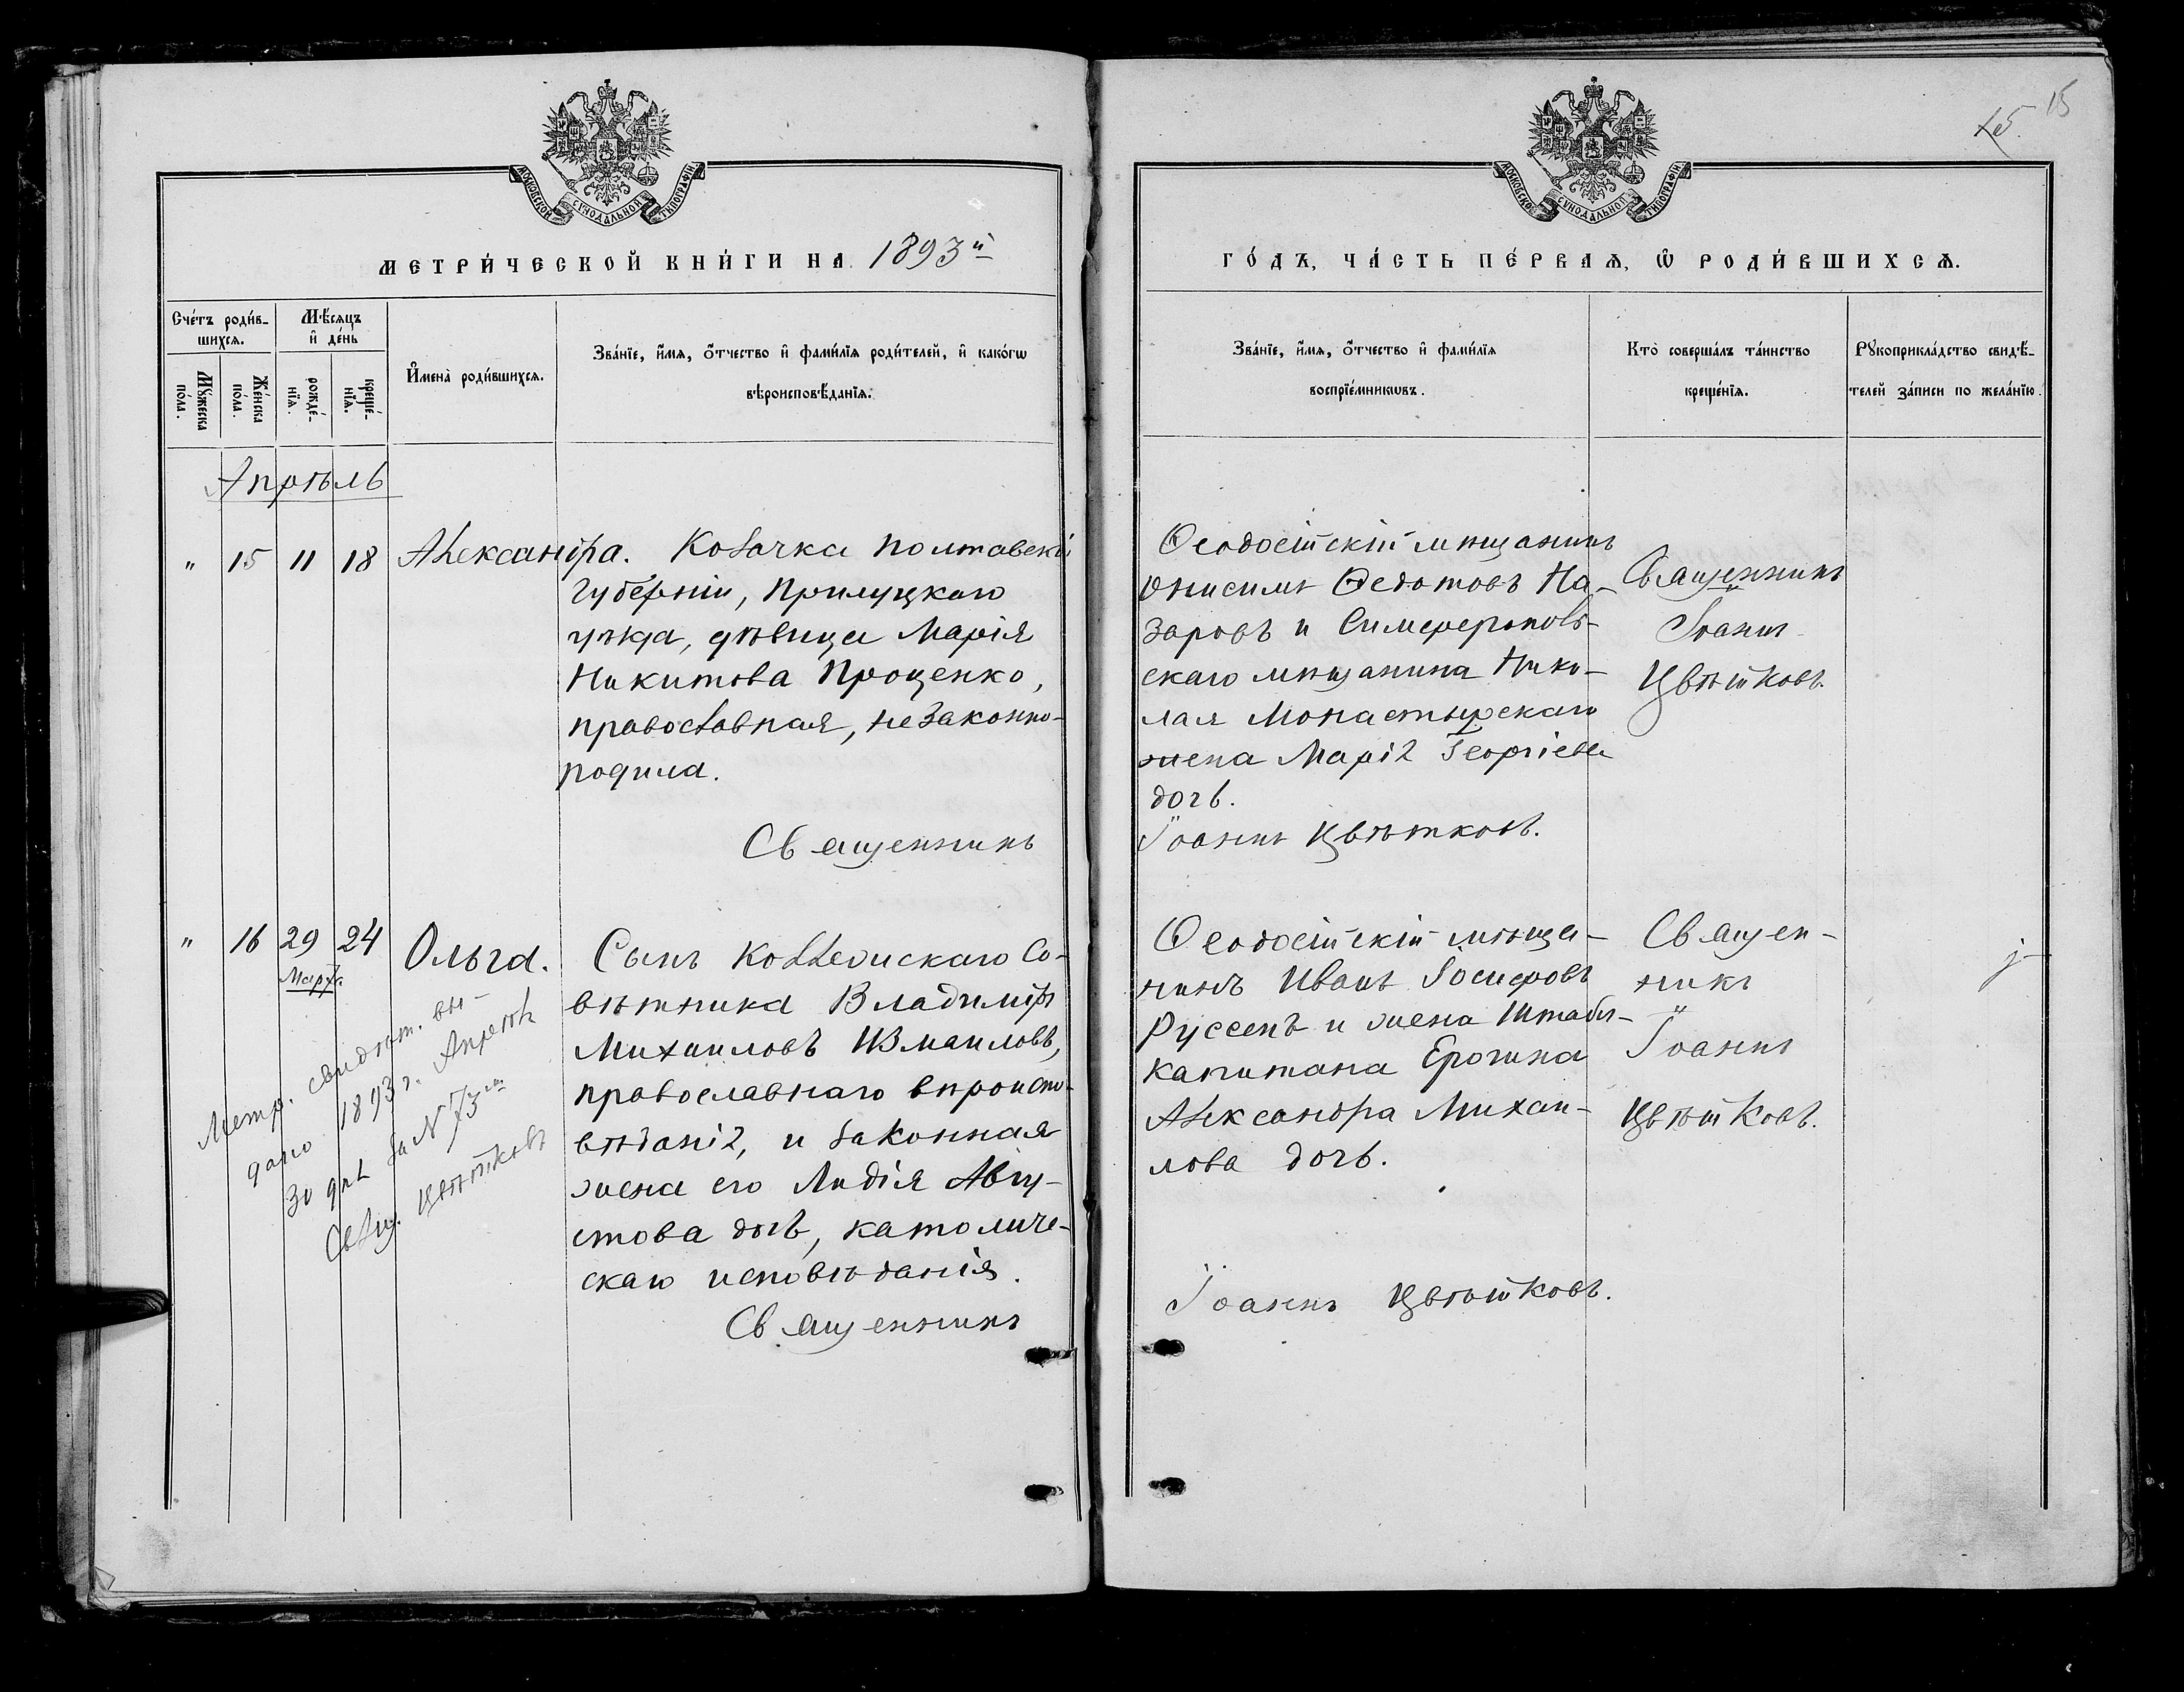 МОСКОВСКОЙ СѴНОДАЛЬНОЙ ТИПОГРАФІИ
МЕТРИ́ЧЕСКОЙ КНИ́ГИ НА 1893й
Сче́тъ роди́в-
шихсѧ.
Мѣ́сѧцъ
и҆ де́нь
Мꙋ́жеска
по́ла.
Же́нска
по́ла.
рожде́-
нїѧ.
креще́-
нїѧ.
И҆мена̀ роди́вшихсѧ.
Зва́нїе, и҆́мѧ, ѻ҆́тчество и҆ фами́лїѧ роди́телей, и҆ како́гѡ
вѣроисповѣ́данїѧ.
Апрѣль
" 15 11 18 Александра. Козачка Полтавской
Губерніи, Прилуцкаго
уѣзда, дѣвица Марія
Никитова Проценко,
православная, незаконно-
родила.
Священникъ
" 16 29 24 Ольга.
Март.
Сынъ Коллежскаго Со-
вѣтника Владиміръ
Михаиловъ Измаиловъ,
православнаго вѣроиспо-
вѣданія, и законная
жена его Лидія Авгу-
стова дочь, католиче-
скаго исповѣданія.
Священникъ
Метр. свидѣт. вы-
дано 1893 г. Апрѣля
30 дня за № 73м
Свящ. Цвѣтковъ
15
МОСКОВСКОЙ СѴНОДАЛЬНОЙ ТИПОГРАФІИ
ГО́ДЪ, ЧА́СТЬ ПЕ́РВАѦ, Ѡ҆ РОДИ́ВШИХСѦ.
Зва́нїе, и҆́мѧ, ѻ҆́тчество и҆ фами́лїѧ
воспрїе́мникѡвъ.
Кто̀ соверша́лъ та́инство
креще́нїѧ.
Рꙋкоприкла́дство свидѣ́-
телей за́писи по жела́нїю.
Ѳеодосійскій мѣщанинъ
Онисимъ Ѳедотовъ На-
заровъ и Симферополь-
скаго мѣщанина Нико-
лая Монастырскаго
жена Марія Георгіева
дочь.
Іоаннъ Цвѣтковъ.
Священникъ
Іоаннъ
Цвѣтковъ.
Ѳеодосійскій мѣща-
нинъ Иванъ Іосифовъ
Руссенъ и жена Штабсъ-
капитана Ерогина
Александра Михаи-
лова дочь.
Іоаннъ Цвѣтковъ.
Священ-
никъ
Іоаннъ
Цвѣтковъ.